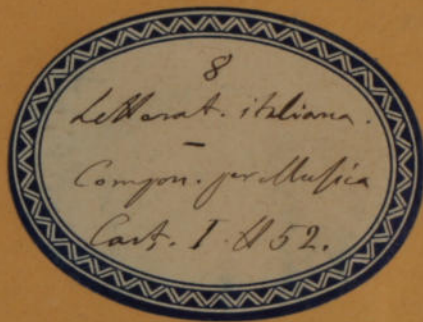 8
Letterat. italiana.
–
Compon. per Musica
Cart. I. N 52.